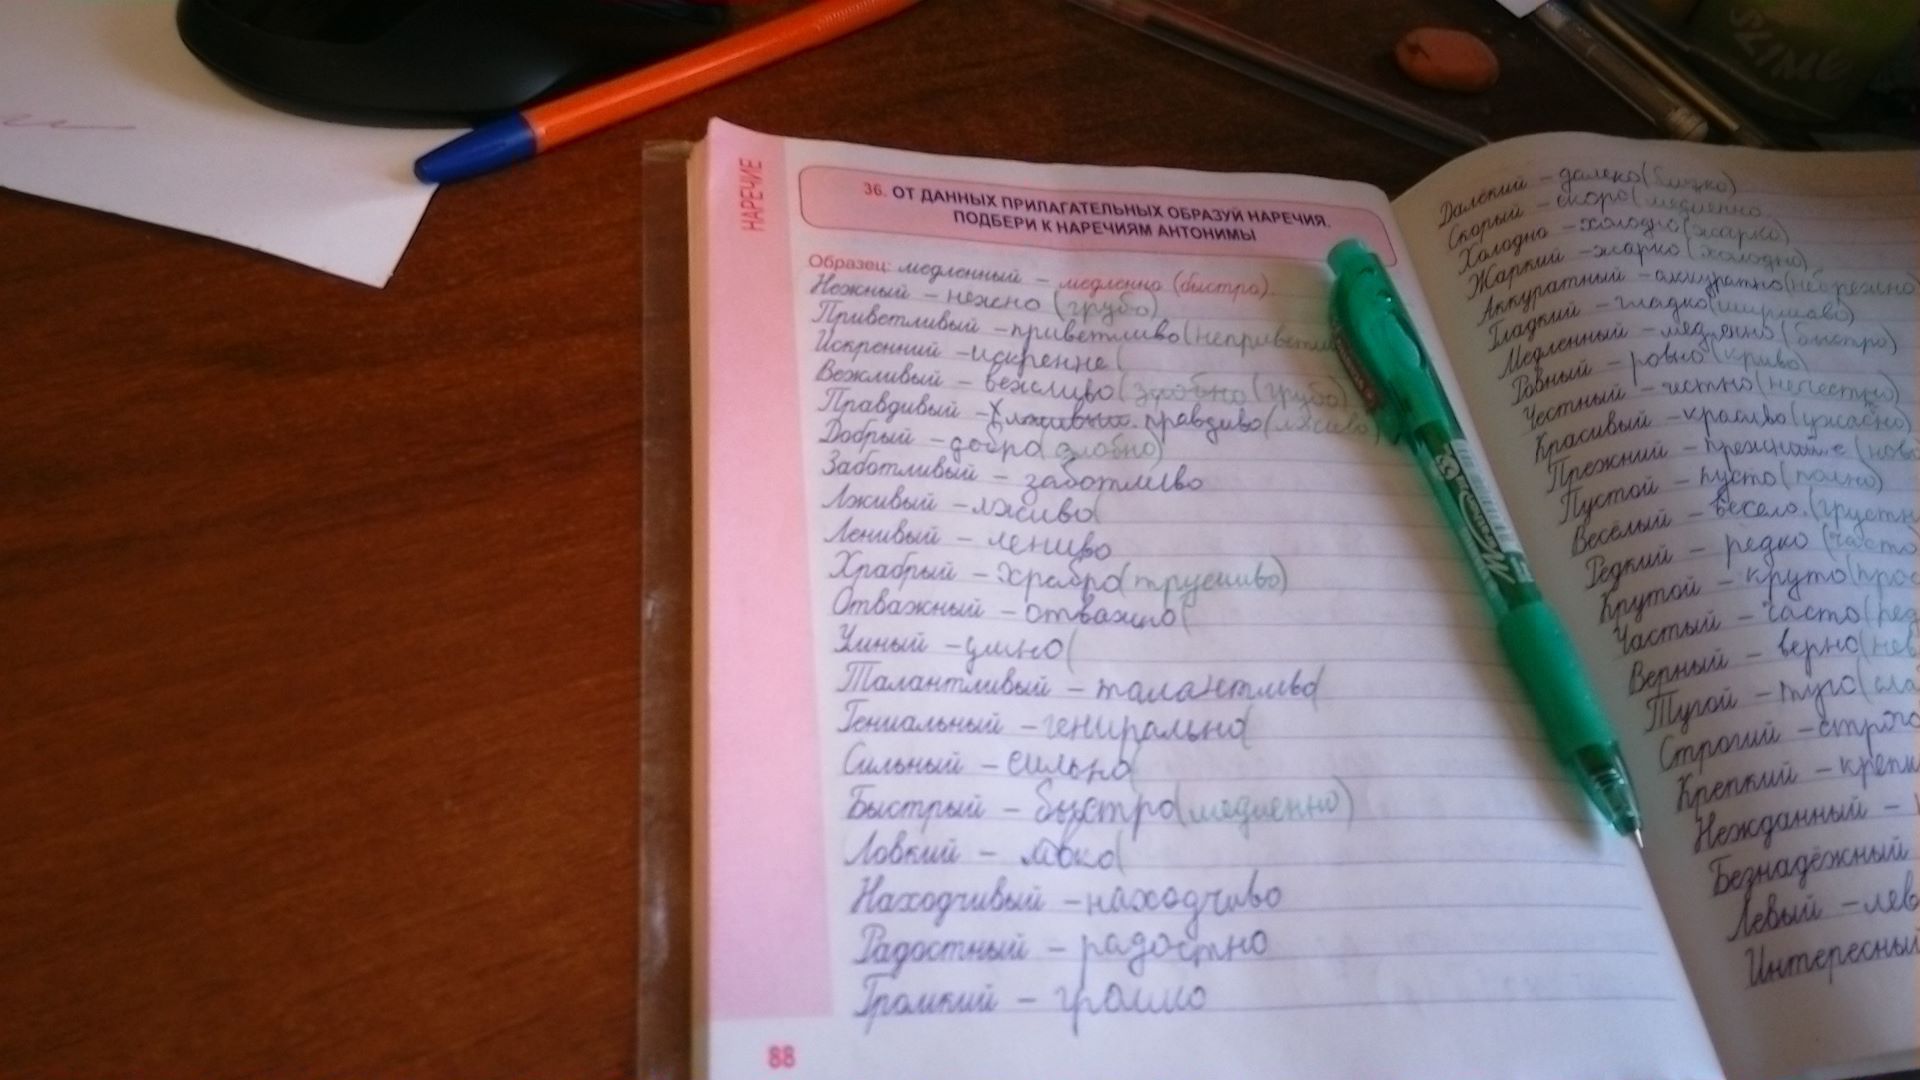 НАРЕЧИЕ
36. ОТ ДАННЫХ ПРИЛАГАТЕЛЬНЫХ ОБРАЗУЙ НАРЕЧИЯ.
ПОДБЕРИ К НАРЕЧИЯМ АНТОНИМЫ
Образец: медленный – медленно (быстро).
Нежный – нежно (грубо)
Приветливый – приветливо (неприветли
Искренний – искренне (
Вежливый – вежливо (злобно (грубо)
Правдивый – правдиво (лживо)
Добрый – добро (злобно)
Заботливый – заботливо
Лживый – лживо (
Ленивый – лениво
Храбрый – храбро (трусливо)
Отважный – отважно (
Умный – умно (
Талантливый – талантливо (
Гениальный – генирально (
Сильный – сильно (
Быстрый – быстро (медленно)
Ловкий – ловко (
Находчивый – находчиво
Радостный – радостно
Громкий – громко
88
Далёкий – далеко (близко)
Скорый – скоро (медленно
Холодно – холодно (жарко)
Жаркий – жарко (холодно)
Аккуратный – аккуратно (небрежно)
Гладкий – гладко (шершаво)
Медленный – медленно (быстро)
Ровный – ровно (криво)
Честный – честно (нечестно)
Красивый – красиво (ужасно)
Прежний – прежние (ново
Пустой – пусто (полно)
Весёлый – весело (грустн
Редкий – редко (часто
Крутой – круто (прос
Частый – часто (ред
Верный – верно (нев
Тугой – туго (сла
Строгий – строго
Крепкий – крепк
Нежданный –
Безнадёжный
Левый – лев
Интересный
SLIME